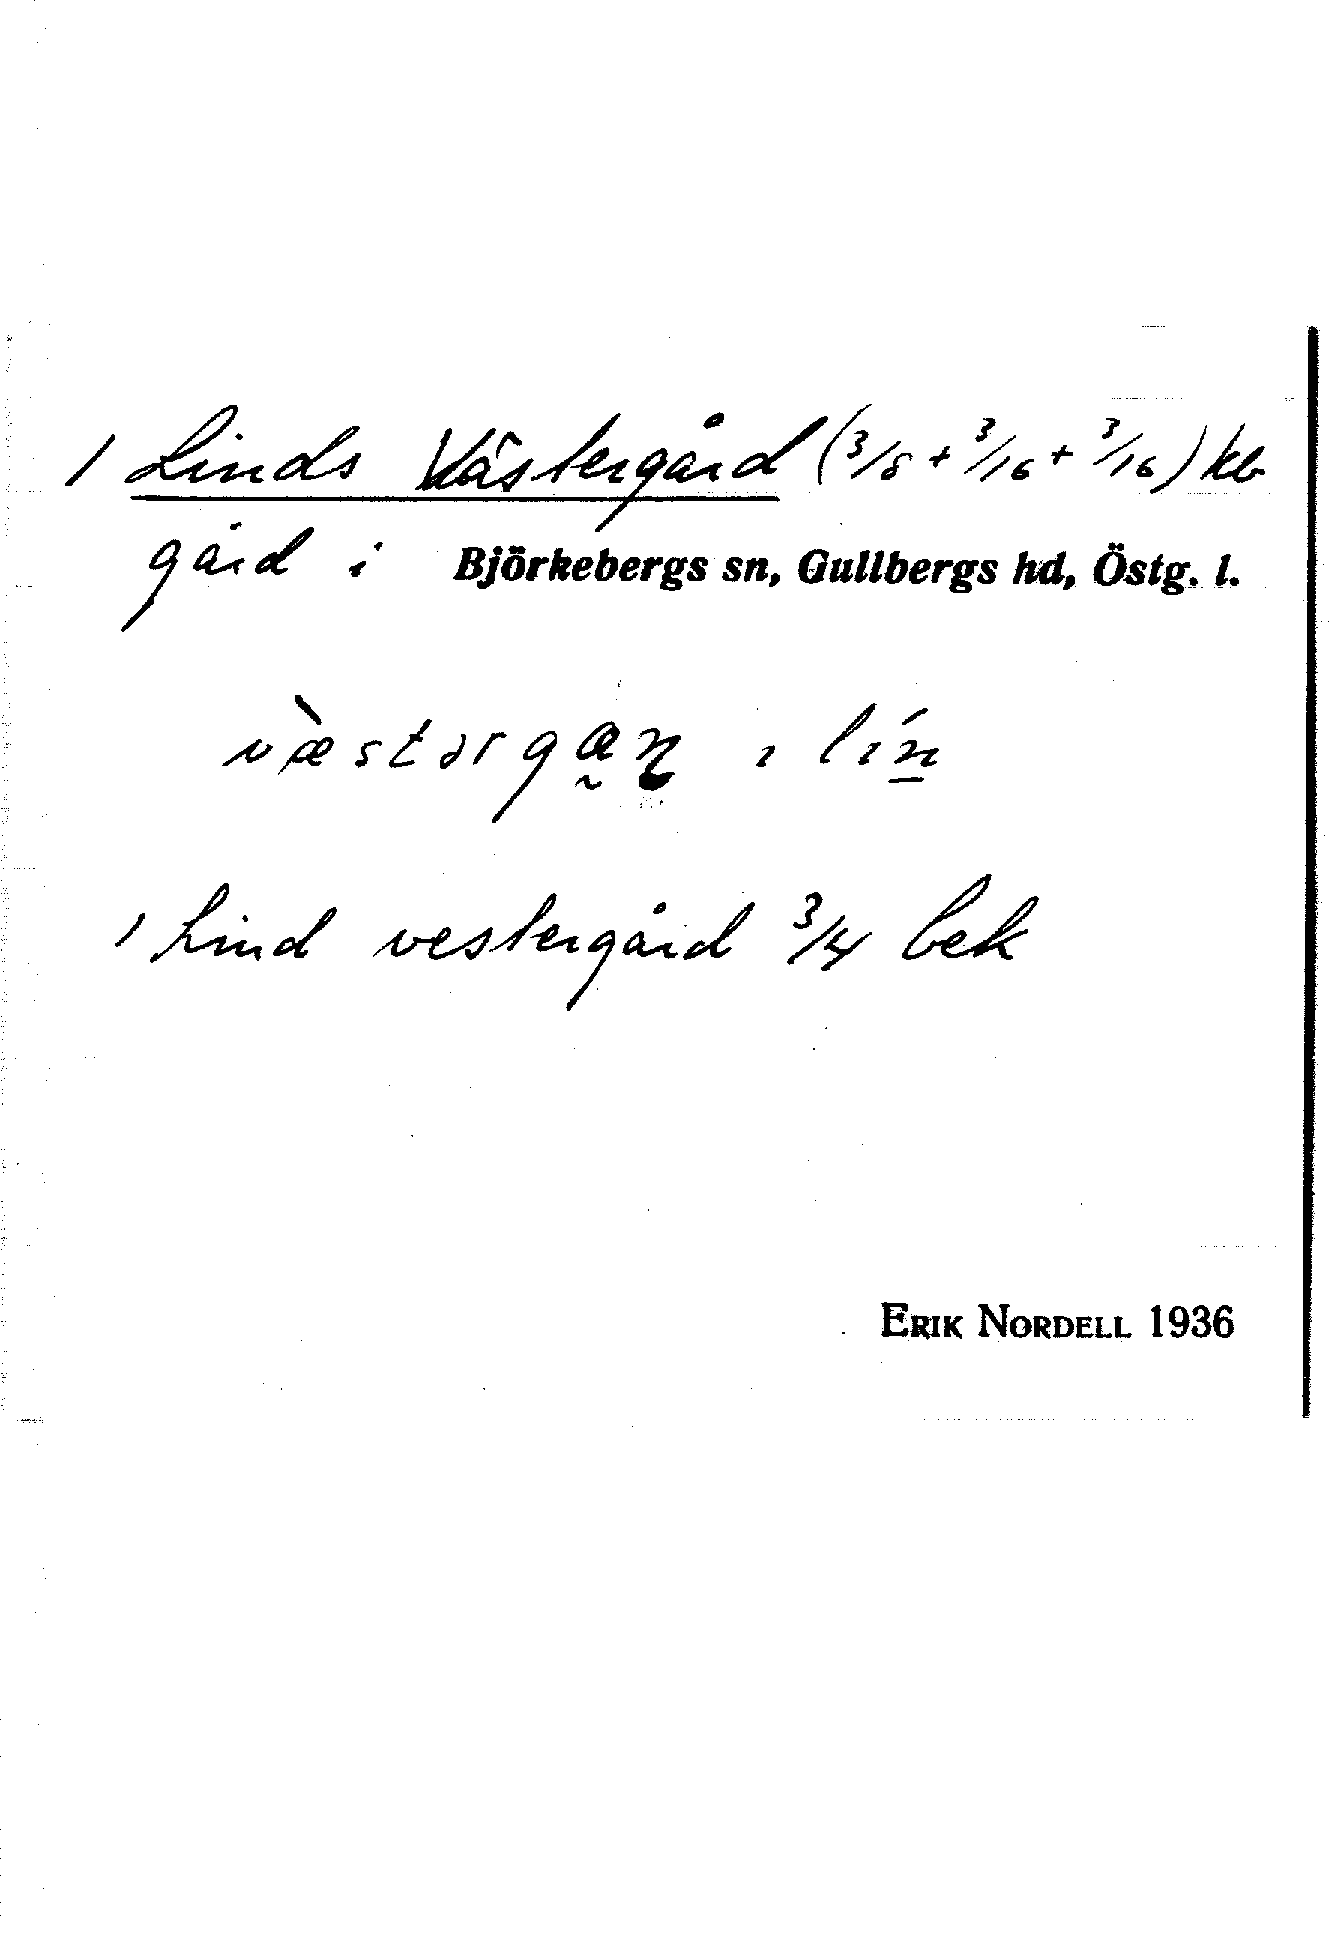 1 Linds Västergård (3/8 + 3/16 + 3/16) kb
gård i Björkebergs sn, Gullbergs hd, Östg. l.
1 Lind vestergård 3/4 bek
ERIK NORDELL 1936